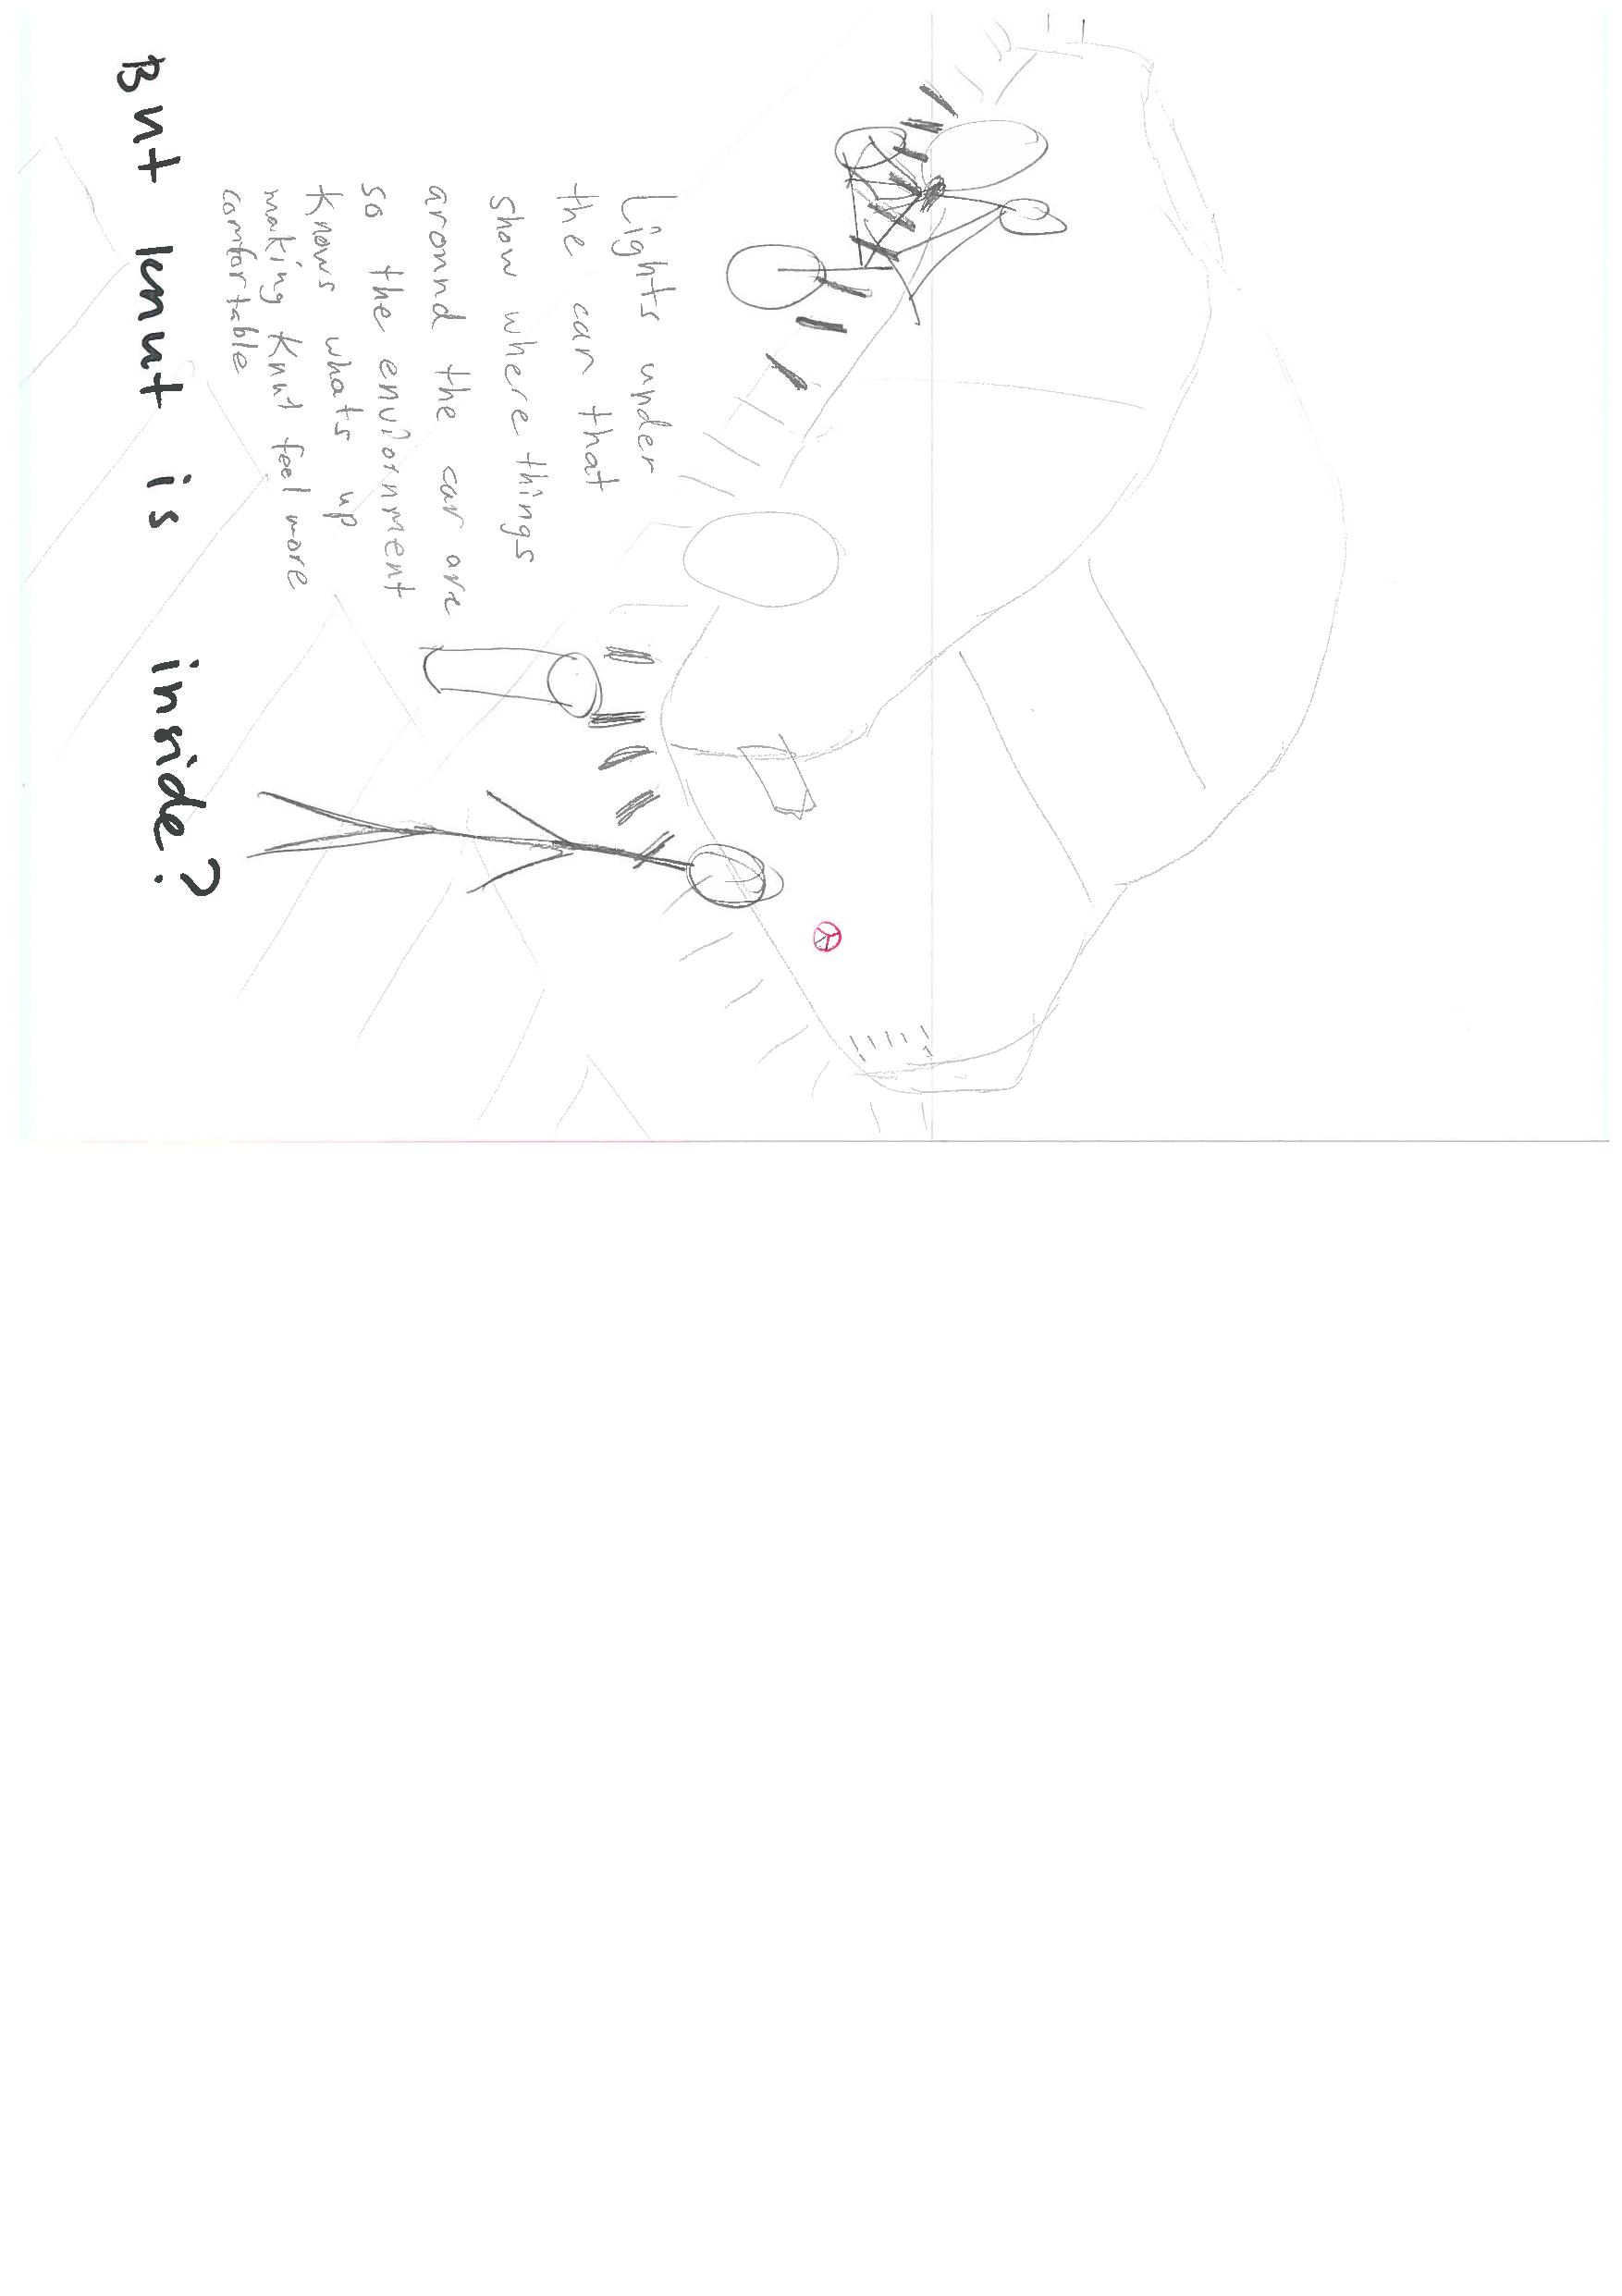 Lights under
the car that
show where things
around the car are
so the enviornment
knows whats up
making Knut feel more
comfortable
But knut is inside?